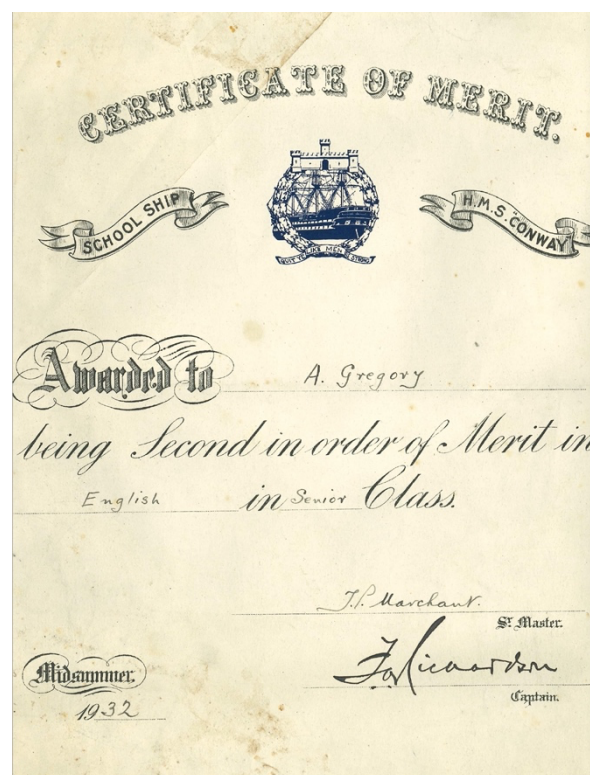 CERTIFICATE OF MERIT.
SCHOOL SHIP
H.M.S. "CONWAY
QUIT YE LIKE MEN BE STRONG
Awarded to A. Gregory
being Second in order of Merit in
English in Senior Class.
J.P. Marchant.
Sr. Master.
Richardson
Captain.
Midsummer.
1932